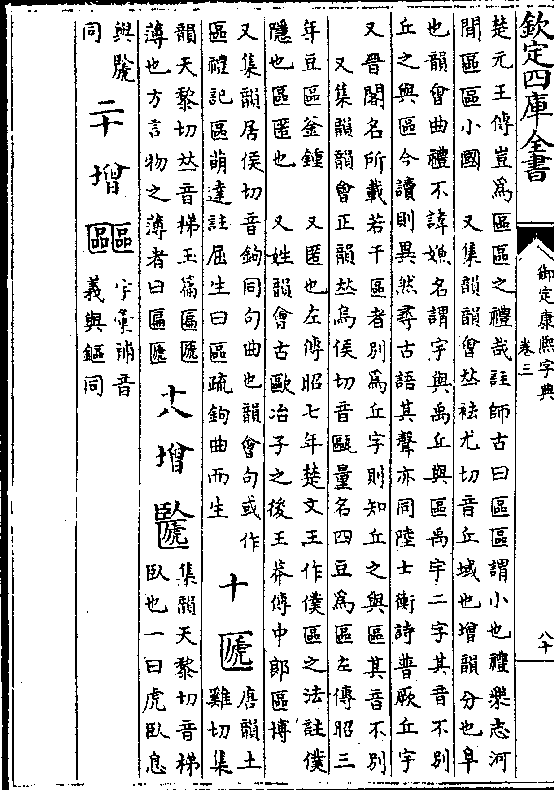 欽定四庫全書
御定康熙字典
卷三
八十
楚元王傳豈爲區區之禮哉註師古曰區區謂小也禮樂志河
間區區小國　又集韻韻會𠀤袪尤切音丘域也增韻分也阜
也韻會曲禮不諱嫌名謂字與禹丘與區禹字二字其音不別
丘之與區今讀則異然尋古語其聲亦同陸士衡詩普厥丘宇
又晉閣名所載若干區者別爲丘字則知丘之與區其音不別
又集韻韻會正韻𠀤烏侯切音甌量名四豆爲區左傳昭三
年豆區釜鍾　又匿也左傳昭七年楚文王作僕區之法註僕
隱也區匿也　又姓韻會古歐冶子之後王莽傳中郎區博
又集韻居侯切音鉤同句曲也韻會句或作
區禮記區萌達註屈生曰區疏鉤曲而生
十
𠥶
唐韻土
雞切集
韻天黎切𠀤音梯玉篇匾𠥶
薄也方言物之薄者曰匾𠥶
十八
增
集韻天黎切音梯
臥也一曰虎臥息
與𧇊
同
二十
增
字彙補音
義與鏂同